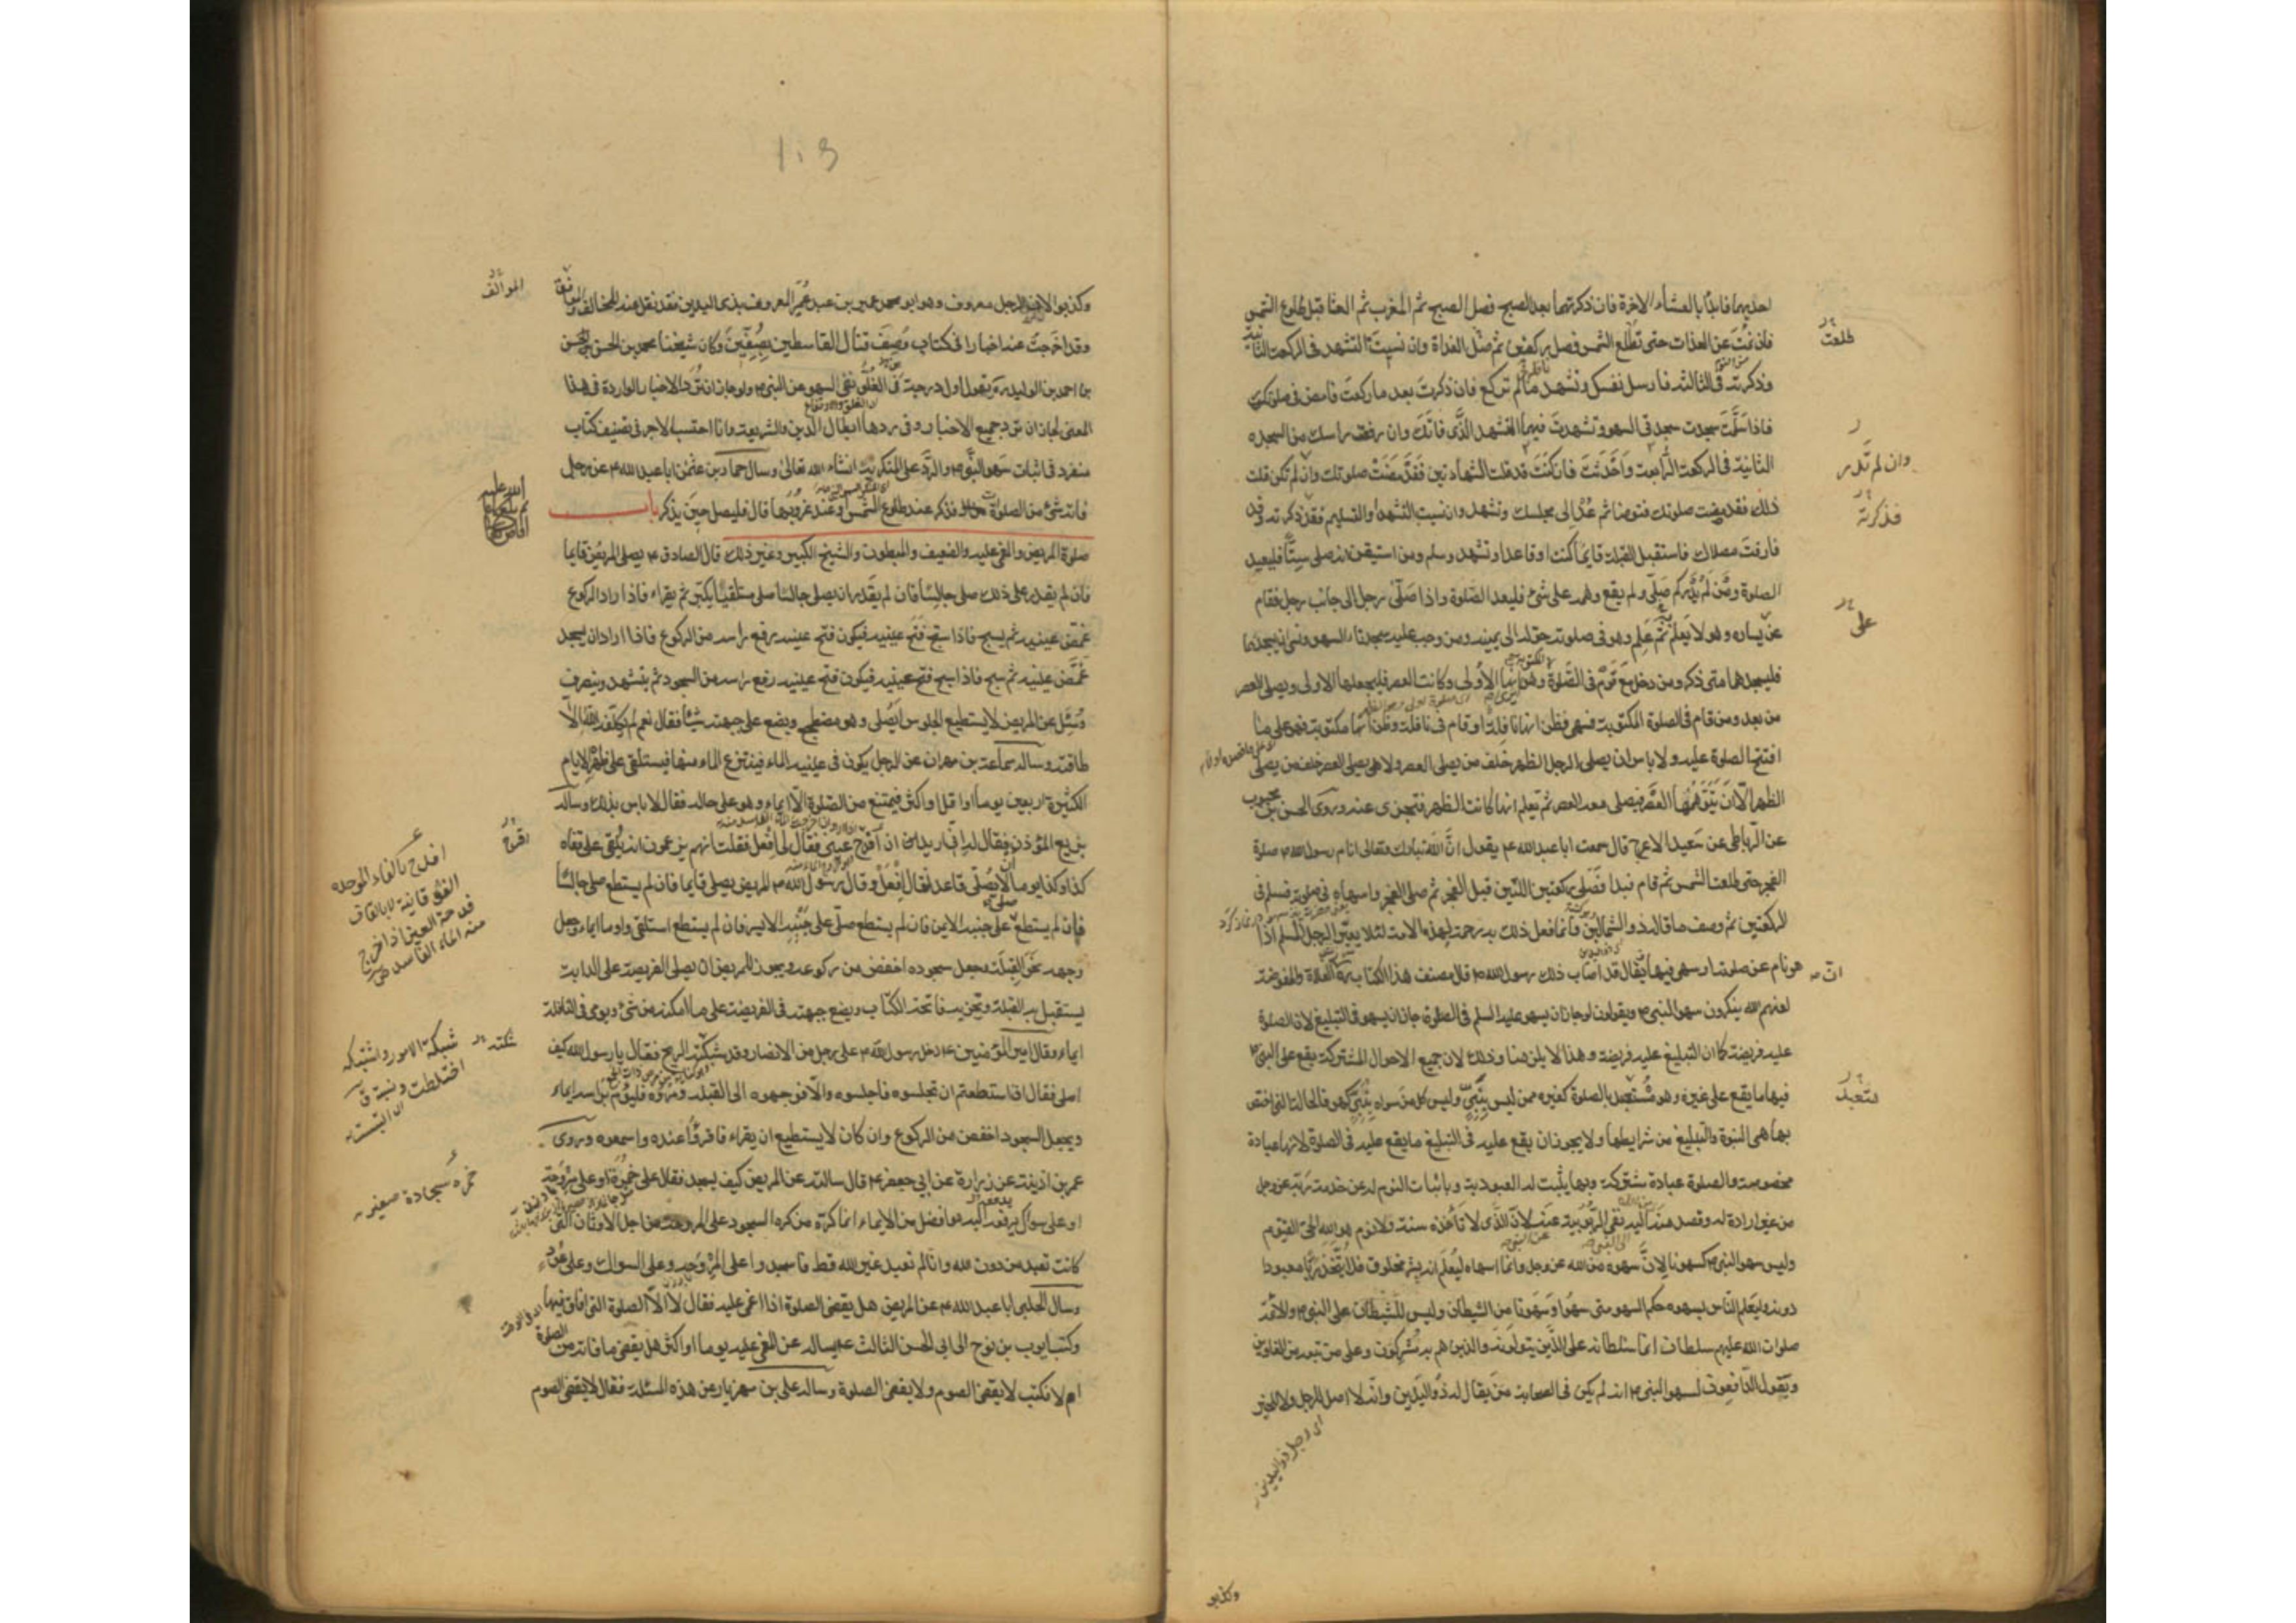 احديهما فابدأ بالعشاء الآخرة فان ذكرتهما بعد الصبح فصل الصبح ثم المغرب ثم العشا قبل طلوع الشمس
فان نمت عن الغداة حتى تطلع الشمس فصل ركعتين ثم صل الغداة وان نسيت التشهد فى الركعة الثانية
وذكرته فى الثالثة فارسل نفسك وتشهد ما لم تركع فان ذكرت بعد ما ركعت فامض فى صلوتك
فاذا سلمت سجدت سجدتى السهو وتشهدت فيهما التشهد الذى فاتك وان رفعت راسك من السجده
الثانية فى الركعة الرابعة واحدثت فان كنت قد قلت الشهادتين فقد مضت صلوتك وان لم تكن قلت
ذلك فقد مضت صلوتك فتوضا ثم عد الى مجلسك وتشهد وان نسيت التشهد او التسليم فقد ذكرته وقد
فارقت مصلاك فاستقبل القبلة قائما كنت او قاعدا وتشهد وسلم ومن استيقن انه صلى ستا فليعيد
الصلوة ومن لم يدر كم صلى ولم يقع وهمه على شئ فليعد الصلوة واذا صلى رجل الى جانب رجل فقام
عن يساره وهو لا يعلم ثم علم وهو فى صلوته حوله الى يمينه ومن وجب عليه سجدتا السهو ونسى ان يسجدهما
فليسجدهما متى ذكر ومن دخل مع قوم فى الصلوة وهو يرى انها الاولى وكانت العصر فليجعلها الاولى ويصلى العصر
من بعد ومن قام فى الصلوة المكتوبة فسهى فظن انها نافلة او قام فى نافلة وظن انها مكتوبة فهو على ما
افتتح الصلوة عليه ولا باس ان يصلى الرجل الظهر خلف من يصلى العصر ولا يصلى العصر خلف من يصلى
الظهر الا ان يتوهمها العصر فيصلى معه العصر ثم يعلم انها كانت الظهر فتجزى عنه وروى الحسن بن محبوب
عن الرباطى عن سعيد الاعرج قال سمعت ابا عبد الله ع يقول ان الله تبارك وتعالى انام رسول الله ص صلوة
الفجر حتى طلعت الشمس ثم قام فبدا فصلى ركعتين اللتين قبل الفجر ثم صلى الفجر واسهاه فى صلوته فسلم فى
الركعتين ثم وصف ما قاله ذو الشمالين وانما فعل ذلك به رحمة لهذه الامة لئلا يعير الرجل المسلم اذا
هو نام عن صلوته او سهى فيها يقال قد اصاب ذلك رسول الله ص قال مصنف هذا الكتاب ره ان الغلاة والمفوضة
لعنهم الله ينكرون سهو النبى ص ويقولون لو جاز ان يسهو عليه السلم فى الصلوة جاز ان يسهو فى التبليغ لان الصلوة
عليه فريضة كما ان التبليغ عليه فريضة وهذا لا يلزمنا وذلك لان جميع الاحوال المشتركة يقع على النبى ص
فيها ما يقع على غيره وهو متعبد بالصلوة كغيره ممن ليس بنبى وليس كل من سواه بنبى كهو فالحالة التى اختص
بها هى النبوة والتبليغ من شرايطها ولا يجوز ان يقع عليه فى التبليغ ما يقع عليه فى الصلوة لانها عبادة
مخصوصة والصلوة عبادة مشتركة وبها يثبت له العبودية وباثبات النوم له عن خدمة ربه عز وجل
من غير ارادة له وقصد منه اليه نفى الربوبية عنه لان الذى لا تاخذه سنة ولا نوم هو الله الحى القيوم
وليس سهو النبى ص كسهونا لان سهوه من الله عز وجل وانما اسهاه ليعلم انه بشر مخلوق فلا يتخذ ربا معبودا
دونه وليعلم الناس بسهوه حكم السهو متى سهوا وسهونا من الشيطان وليس للشيطان على النبى ص والائمة
صلوات الله عليهم سلطان انما سلطانه على الذين يتولونه والذين هم به مشركون وعلى من تبعه من الغاوين
ويقول الدافعون لسهو النبى ص انه لم يكن فى الصحابة من يقال له ذو اليدين وانه لا اصل للرجل ولا للخبر
اى رجل ذواليدين
طلعت
وان لم تدر
فذكرته
على
متعبد
وكذبوا
١٠٩
وكذبوا لان الرجل معروف وهو ابو محمد عمير بن عبد عمير المعروف بذى اليدين فقد نقل عنه المخالف والموافق
وقد اخرجت عنه اخبارا فى كتاب وصف قتال القاسطين بصفين وكان شيخنا محمد بن الحسن
بن احمد بن الوليد ره يقول اول درجة فى الغلو نفى السهو عن النبى ص ولو جاز ان ترد الاخبار الواردة فى هذا
المعنى لجاز ان ترد جميع الاخبار وفى ردها ابطال الدين والشريعة وانا احتسب الاجر فى تصنيف كتاب
منفرد فى اثبات سهو النبى ص والرد على المنكريه انشاء الله تعالى وسال حماد بن عثمن ابا عبد الله ع عن رجل
فاته شئ من الصلوات فذكر عند طلوع الشمس او عند غروبها قال فليصل حين يذكر باب
صلوة المريض والمغمى عليه والضعيف والمبطون والشيخ الكبير وغير ذلك قال الصادق ع يصلى المريض قائما
فان لم يقدر على ذلك صلى جالسا فان لم يقدر ان يصلى جالسا صلى مستلقيا يكبر ثم يقراء فاذا اراد الركوع
غمض عينيه ثم يسبح فاذا سبح فتح عينيه فيكون فتح عينيه رفع راسه من الركوع فاذا اراد ان يسجد
غمض عينيه ثم سبح فاذا سبح فتح عينيه فيكون فتح عينيه رفع راسه من السجود ثم يتشهد وينصرف
وسئل عن المريض لا يستطيع الجلوس ايصلى وهو مضطجع ويضع على جبهته شيئا فقال نعم لم يكلفه الله الا
طاقته وساله سماعة بن مهران عن الرجل يكون فى عينيه الماء فينتزع الماء منها فيستلقى على ظهره الايام
الكثيرة اربعين يوما او اقل او اكثر فيمتنع من الصلوة الا ايماء وهو على حاله فقال لا باس بذلك وساله
بزيع المؤذن فقال له انى اريد ان اقدح عينى فقال لى افعل فقلت انهم يزعمون انه يلقى على قفاه
كذا وكذا يوما لا يصلى قاعدا فقال افعل وقال رسول الله ص المريض يصلى قايما فان لم يستطع صلى جالسا
فان لم يستطع صلى على جنبه الايمن فان لم يستطع صلى على جنبه الايسر فان لم يستطع استلقى واوما ايماء وجعل
وجهه نحو القبلة وجعل سجوده اخفض من ركوعه ويجوز للمريض ان يصلى الفريضة على الدابة
يستقبل به القبلة ويجزيه فاتحة الكتاب ويضع جبهته فى الفريضة على ما امكنه من شئ ويومى فى النافلة
ايماء وقال امير المؤمنين ع دخل رسول الله ص على رجل من الانصار وقد شبكته الريح فقال يا رسول الله كيف
اصلى فقال ان استطعتم ان تجلسوه فاجلسوه والا فوجهوه الى القبلة ومروه فليوم براسه ايماء
ويجعل السجود اخفض من الركوع وان كان لا يستطيع ان يقراء فاقرؤا عنده واسمعوه وروى
عمر بن اذينة عن زرارة عن ابى جعفر ع قال سالته عن المريض كيف يسجد فقال على خمرة او على مروحة
او على سواك يرفعه اليه هو افضل من الايماء انما كره من كره السجود على المروحة من اجل الاوثان التى
كانت تعبد من دون الله وانا لم نعبد غير الله قط فاسجدوا على المروحة وعلى السواك وعلى عود
وسال الحلبى ابا عبد الله ع عن المريض هل يقضى الصلوة اذا اغمى عليه فقال لا الا الصلوة التى افاق فيها
وكتب ايوب بن نوح الى ابى الحسن الثالث ع يساله عن المغمى عليه يوما او اكثر هل يقضى ما فاته من الصلوة
ام لا فكتب لا يقضى الصوم ولا يقضى الصلوة وساله على بن مهزيار عن هذه المسئلة فقال لا يقضى الصوم
المؤالف
افدح بالفاء الموحده
فدحة العين اذا اخرج
منه الماء الفاسد
شبكته
شبكه الامور واشتبكه
اختلطت
خمره سجادة صغيره